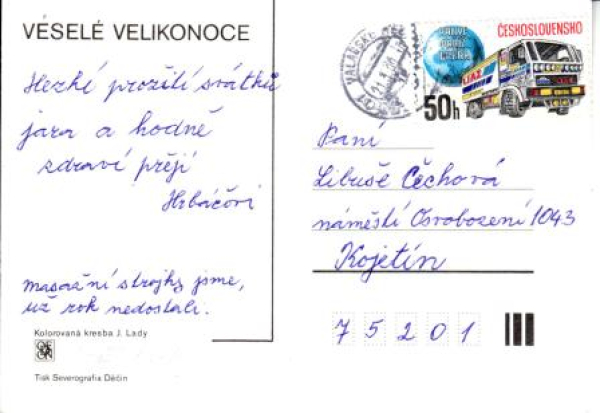 VESELÉ VELIKONOCE
Hezké prožití svátků
jara a hodně
zdraví přejí
Hrbáčovi
masážní strojky jsme,
už rok nedostali.
Kolorovaná kresba J. Lady
Tisk Severografia Děčín
ČESKOSLOVENSKO
RALLYE
PARIS
DAKAR
LIAZ
50h
VALAŠSKÉ
Paní
Libuše Čechová
náměstí Osvobození 1043
Kojetín
75201